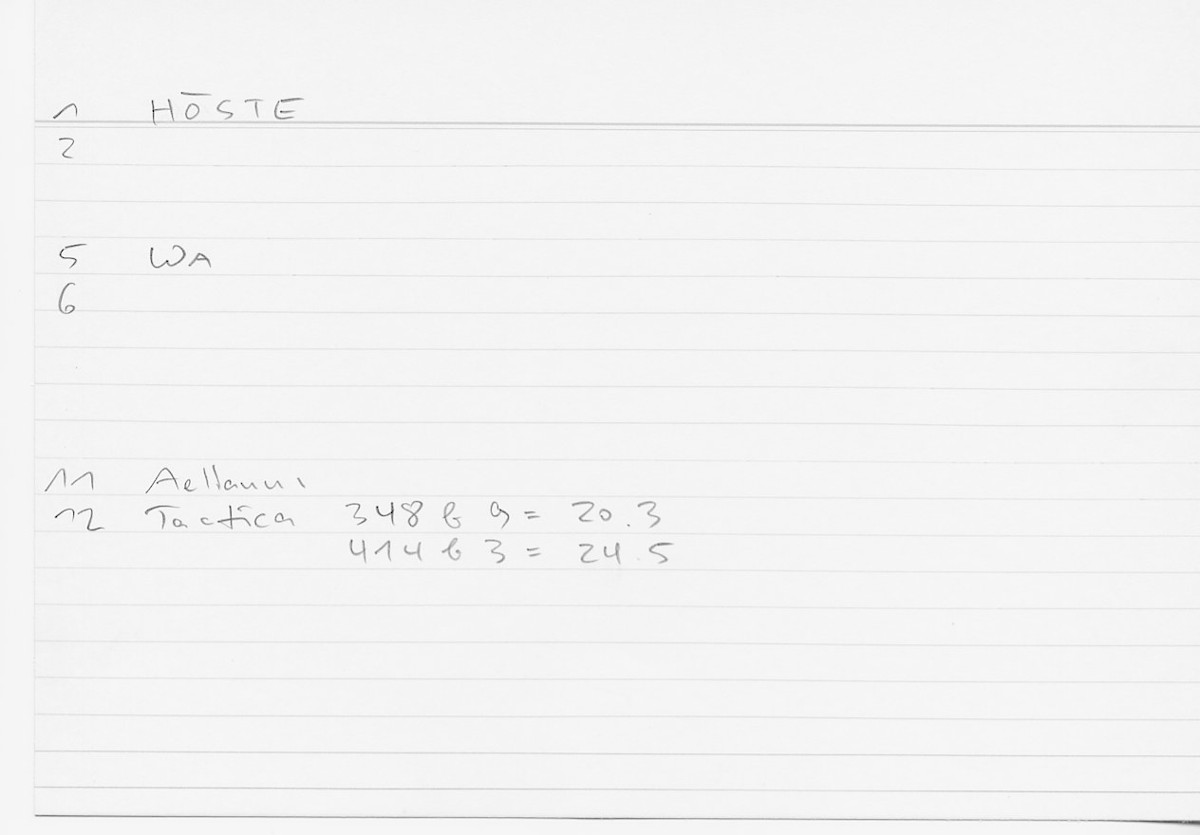 1 HŌSTE
2
5 WA
6
11 Aelianus
12 Tactica 348 b 9 = 20.3
414 b 3 = 24.5